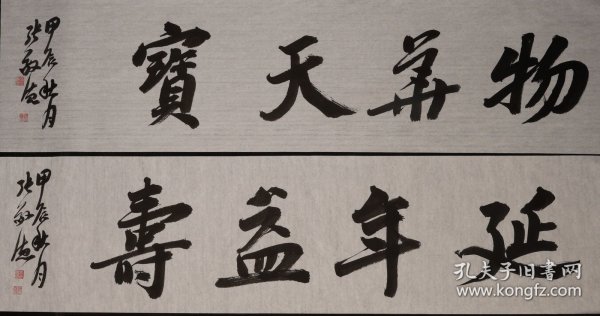 物華天寶
甲辰秋月
張敬
延年益壽
甲辰秋月
張敬
孔夫子旧书网
www.kongfz.com